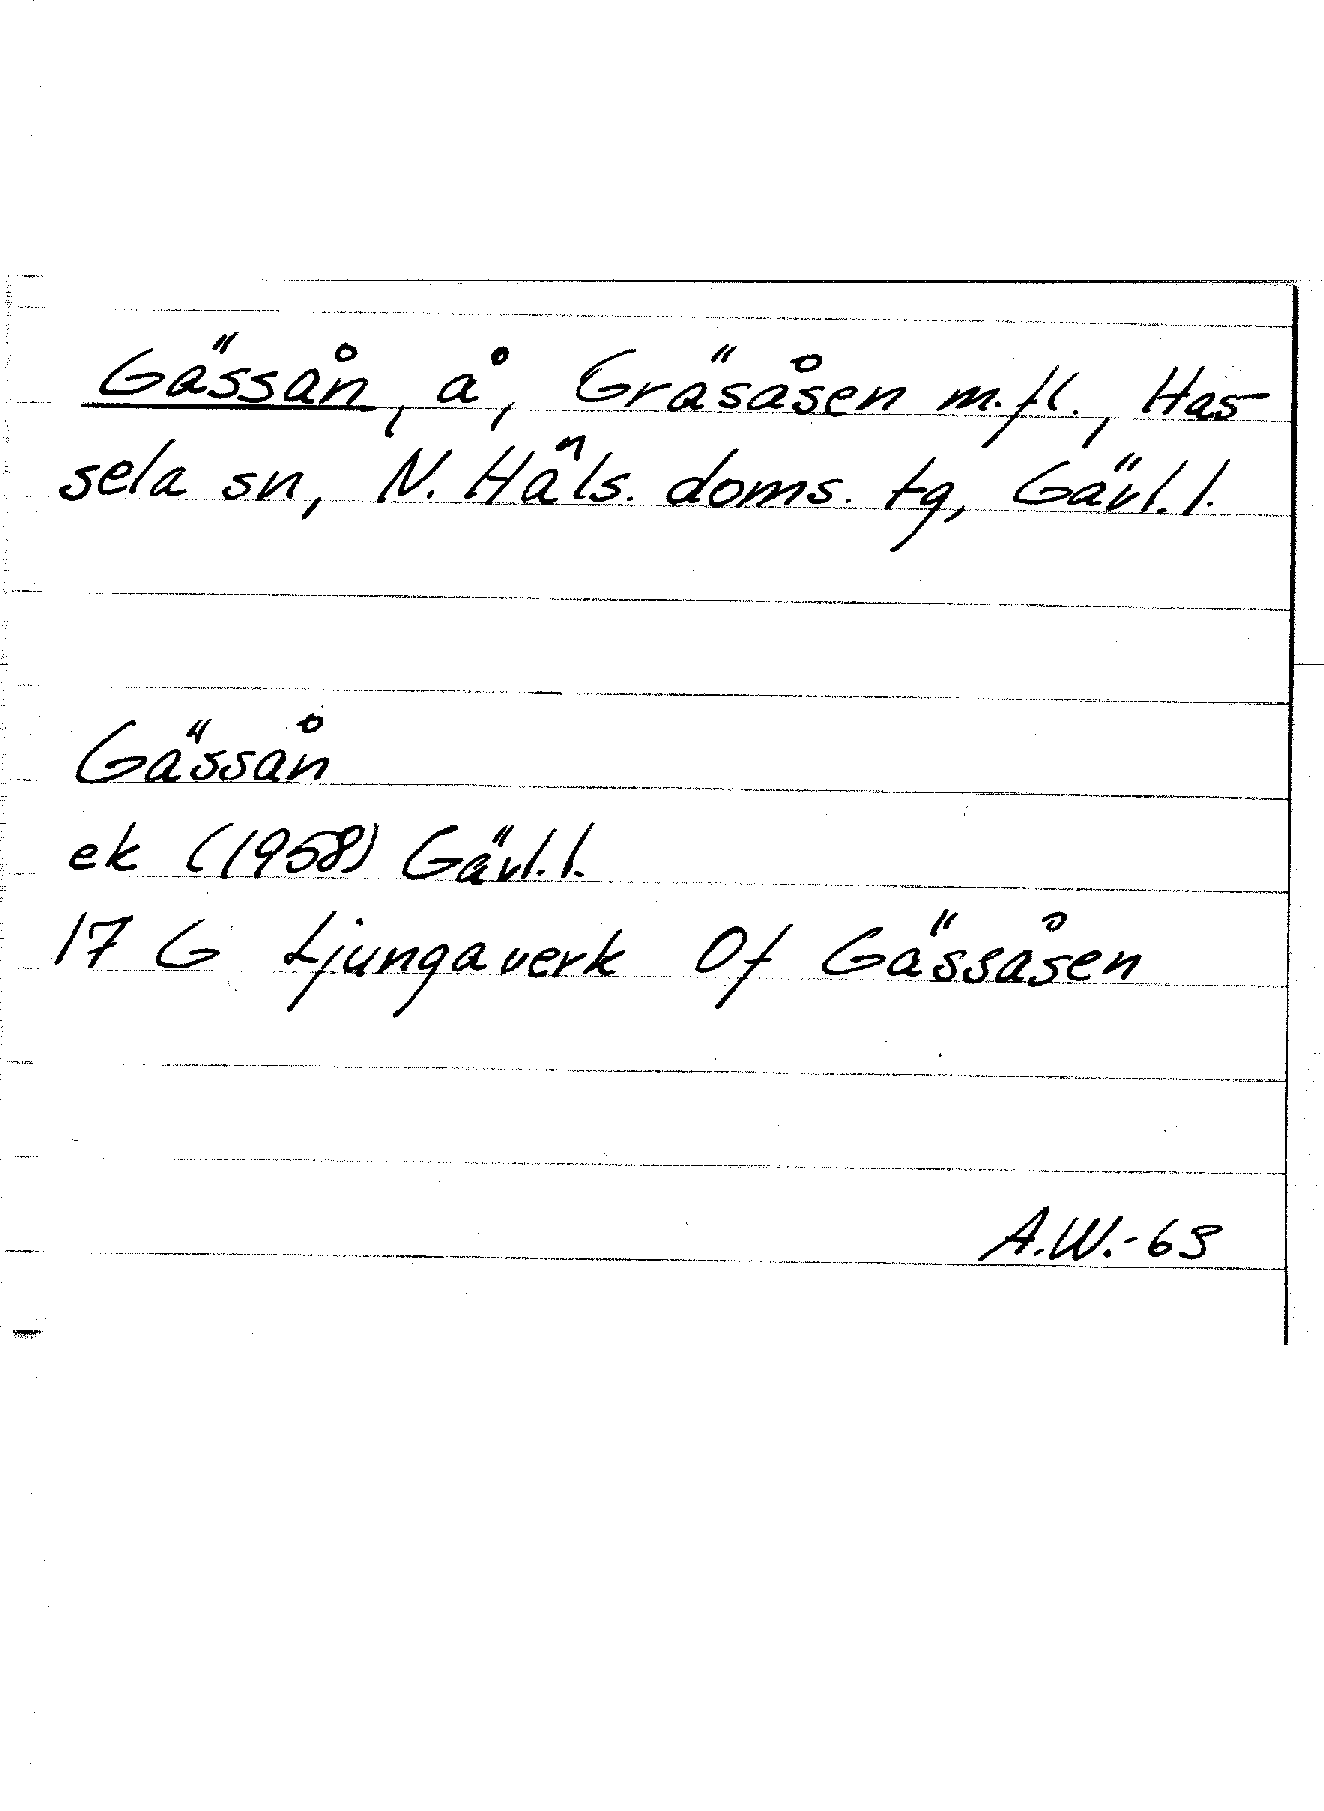 Gässån, å, Gräsåsen m.fl., Has-
sela sn, N. Häls. doms. tg, Gävl. l.
Gässån
ek (1958) Gävl. l.
17 G Ljungaverk 0f Gässåsen
A.W.-63